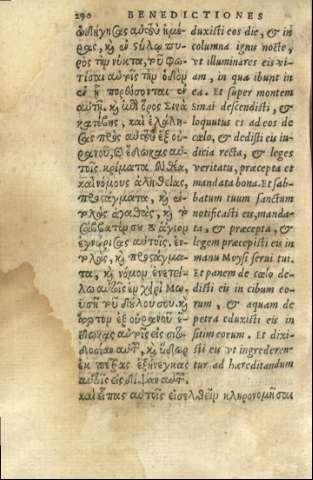 290 BENEDICTIONES
ὡδήγησας αὐτοὺς ἡμέ-
ρας, καὶ ἐν στύλῳ πυ-
ρὸς τὴν νύκτα, τοῦ φω-
τίσαι αὐτοῖς τὴν ὁδὸν
ἐν ᾗ πορεύσονται ἐν
αὐτῇ. καὶ ἐπὶ ὄρος Σινὰ
κατέβης, καὶ ἐλάλη-
σας πρὸς αὐτοὺς ἐξ οὐ-
ρανοῦ, καὶ ἔδωκας αὐ-
τοῖς κρίματα εὐθέα,
καὶ νόμους ἀληθείας,
προστάγματα, καὶ ἐν-
τολὰς ἀγαθὰς, καὶ τὸ
σάββατόν σου τὸ ἅγιον
ἐγνώρισας αὐτοῖς, ἐν-
τολὰς, καὶ προστάγμα-
τα, καὶ νόμον ἐνετεί-
λω αὐτοῖς ἐν χειρὶ Μω-
υσῆ τοῦ δούλου σου. καὶ
ἄρτον ἐξ οὐρανοῦ ἔ-
δωκας αὐτοῖς εἰς σιτο-
δοσίαν αὐτῶν, καὶ ὕδωρ
ἐκ πέτρας ἐξήνεγκας
αὐτοῖς εἰς δίψαν αὐτῶν.
καὶ εἶπας αὐτοῖς εἰσελθεῖν κληρονομῆσαι
duxisti eos die, & in
columna ignis nocte,
vt illuminares eis vi-
am, in qua ibunt in
ea. Et super montem
Sinai descendisti, &
loquutus es ad eos de
cœlo, & dedisti eis iu-
dicia recta, & leges
veritatis, præcepta et
mandata bona. Et sab-
batum tuum sanctum
notificasti eis, manda-
ta, & præcepta, &
legem præcepisti eis in
manu Moysi serui tui.
Et panem de cœlo de-
disti eis in cibum eo-
rum, & aquam de
petra eduxisti eis in
sitim eorum. Et dixi-
sti eis vt ingrederen-
tur ad hæreditandum